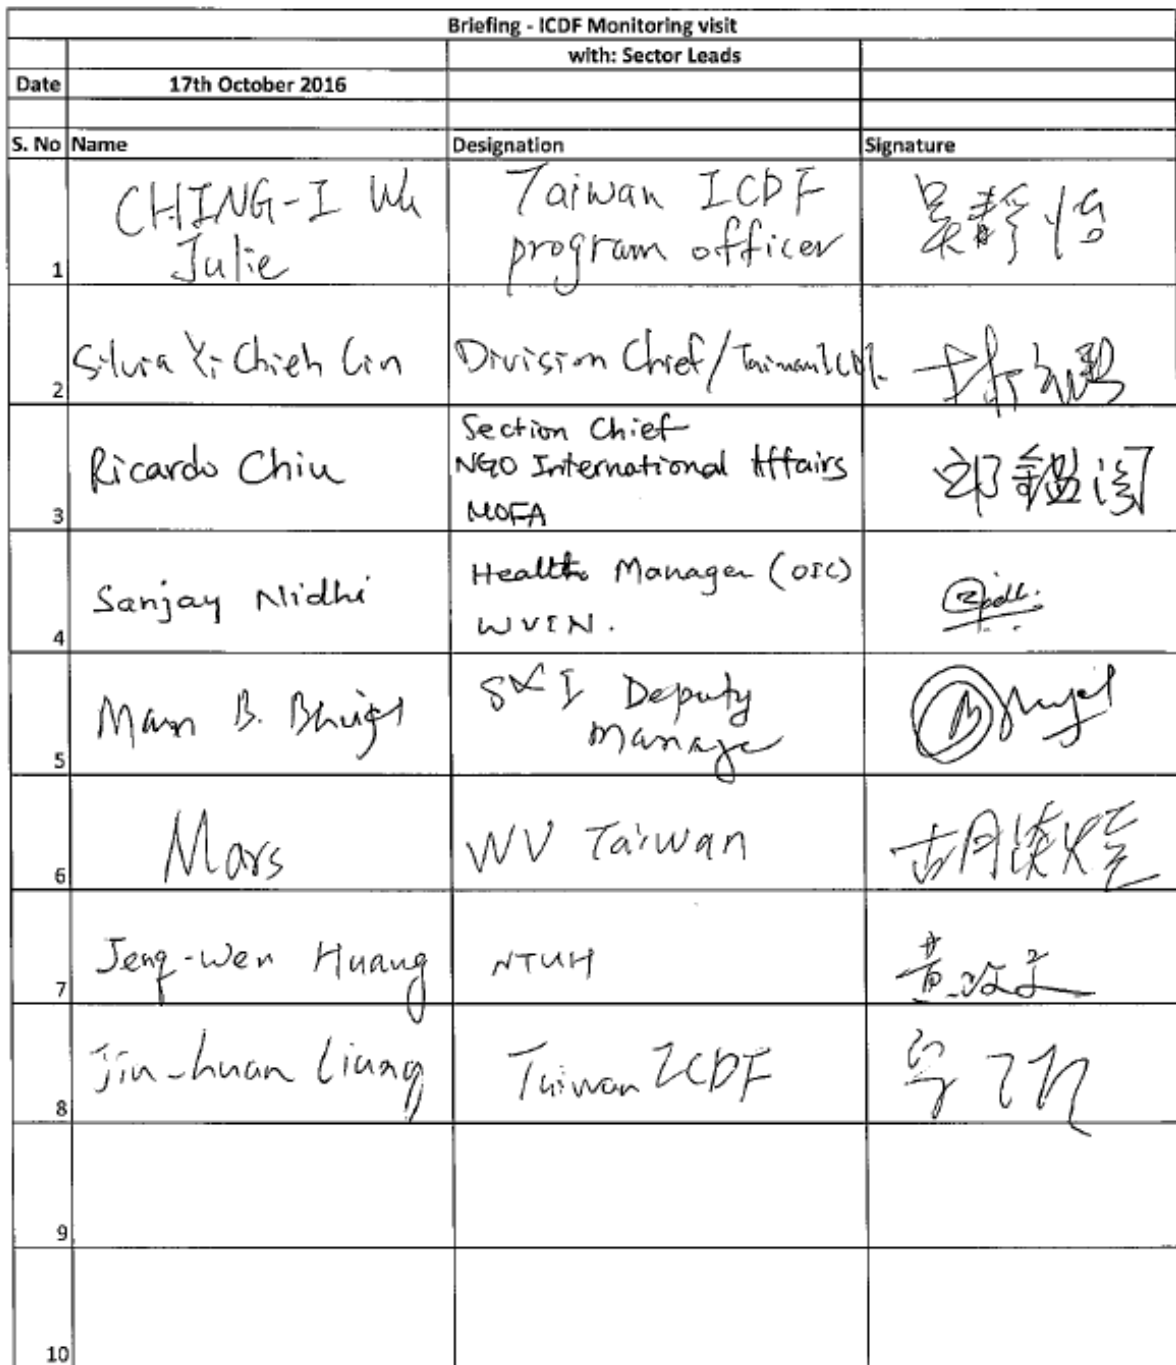 Briefing - ICDF Monitoring visit
with: Sector Leads
Date 17th October 2016
S. No Name Designation Signature
CHING-I Wu Taiwan ICDF 吳靜怡
1 Julie program officer
2 Silvia Yi Chieh Lin Division Chief/Taiwan ICDF. 林
Section Chief
Ricardo Chiu NGO International Affairs 邱鑑
3 MOFA
Sanjay Nidhi Health Manager (OIC)
4 WVIN.
Man B. S&I Deputy
5 Manage
6 Mars WV Taiwan 胡
7 Jenq-Wen Huang NTUH 黃政文
8 Jin-huan Liung Taiwan ICDF
9
10